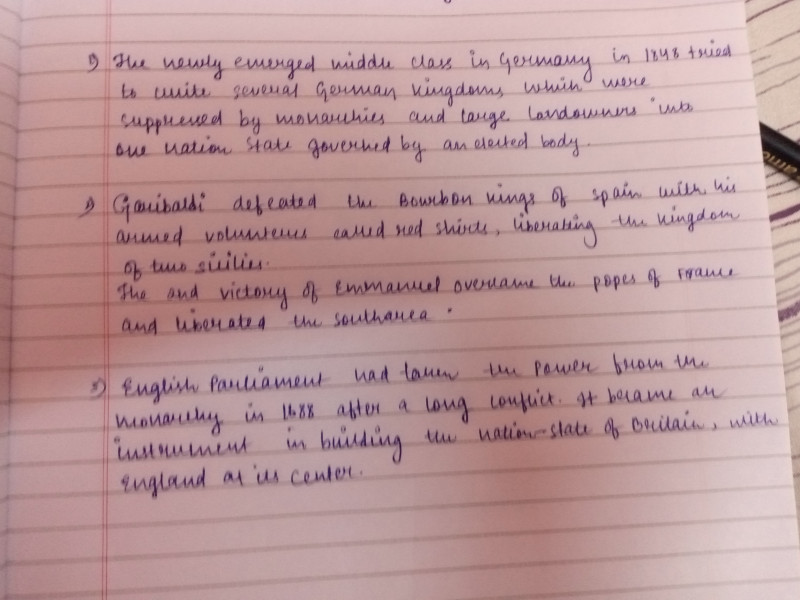 1) The newly emerged middle class in Germany in 1848 tried
to unite several German kingdoms, which were
suppressed by monarchies and large landowners into
one nation state governed by an elected body.
2) Garibaldi defeated the Bourbon kings of Spain with his
armed volunteers called red shirts, liberating the kingdom
of two sicilies.
The and victory of Emmanuel overcame the popes of France
and liberated the south area.
3) English Parliament had taken the Power from the
monarchy in 1688 after a long conflict. It became an
instrument in building the nation-state of Britain, with
England at its center.